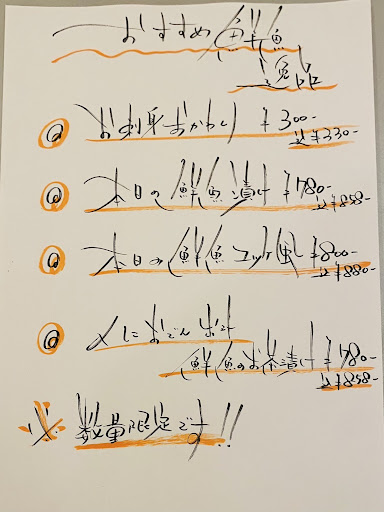 おすすめ鮮魚
逸品
お刺身おかわり ¥300-
込¥330-
本日の鮮魚漬け ¥780-
込¥858-
本日の鮮魚ユッケ風 ¥800-
込¥880-
〆におでん出汁
鮮魚のお茶漬け ¥780-
込¥858-
※ 数量限定です!!